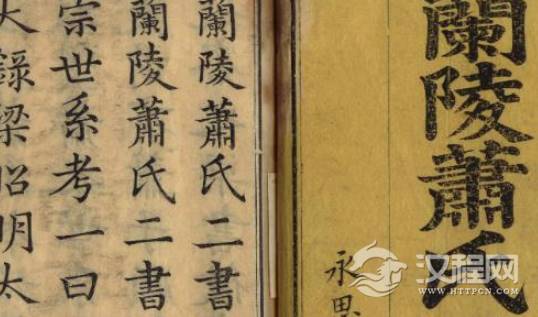 蘭陵蕭氏
永
蘭陵蕭氏二書
蘭陵蕭氏二書
宗世系考一曰
錄梁昭明太
汉程网
HTTPCN.COM